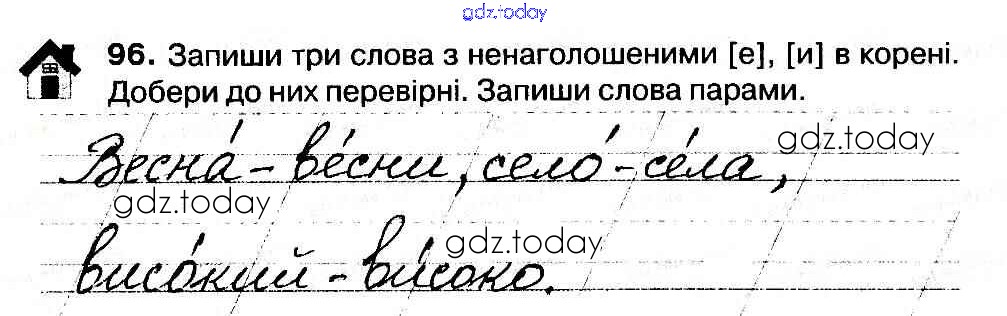 gdz.today
96. Запиши три слова з ненаголошеними [е], [и] в корені.
Добери до них перевірні. Запиши слова парами.
Весна́ – ве́сни, село́ – се́ла,
gdz.today
gdz.today
висо́кий – ви́соко.
gdz.today